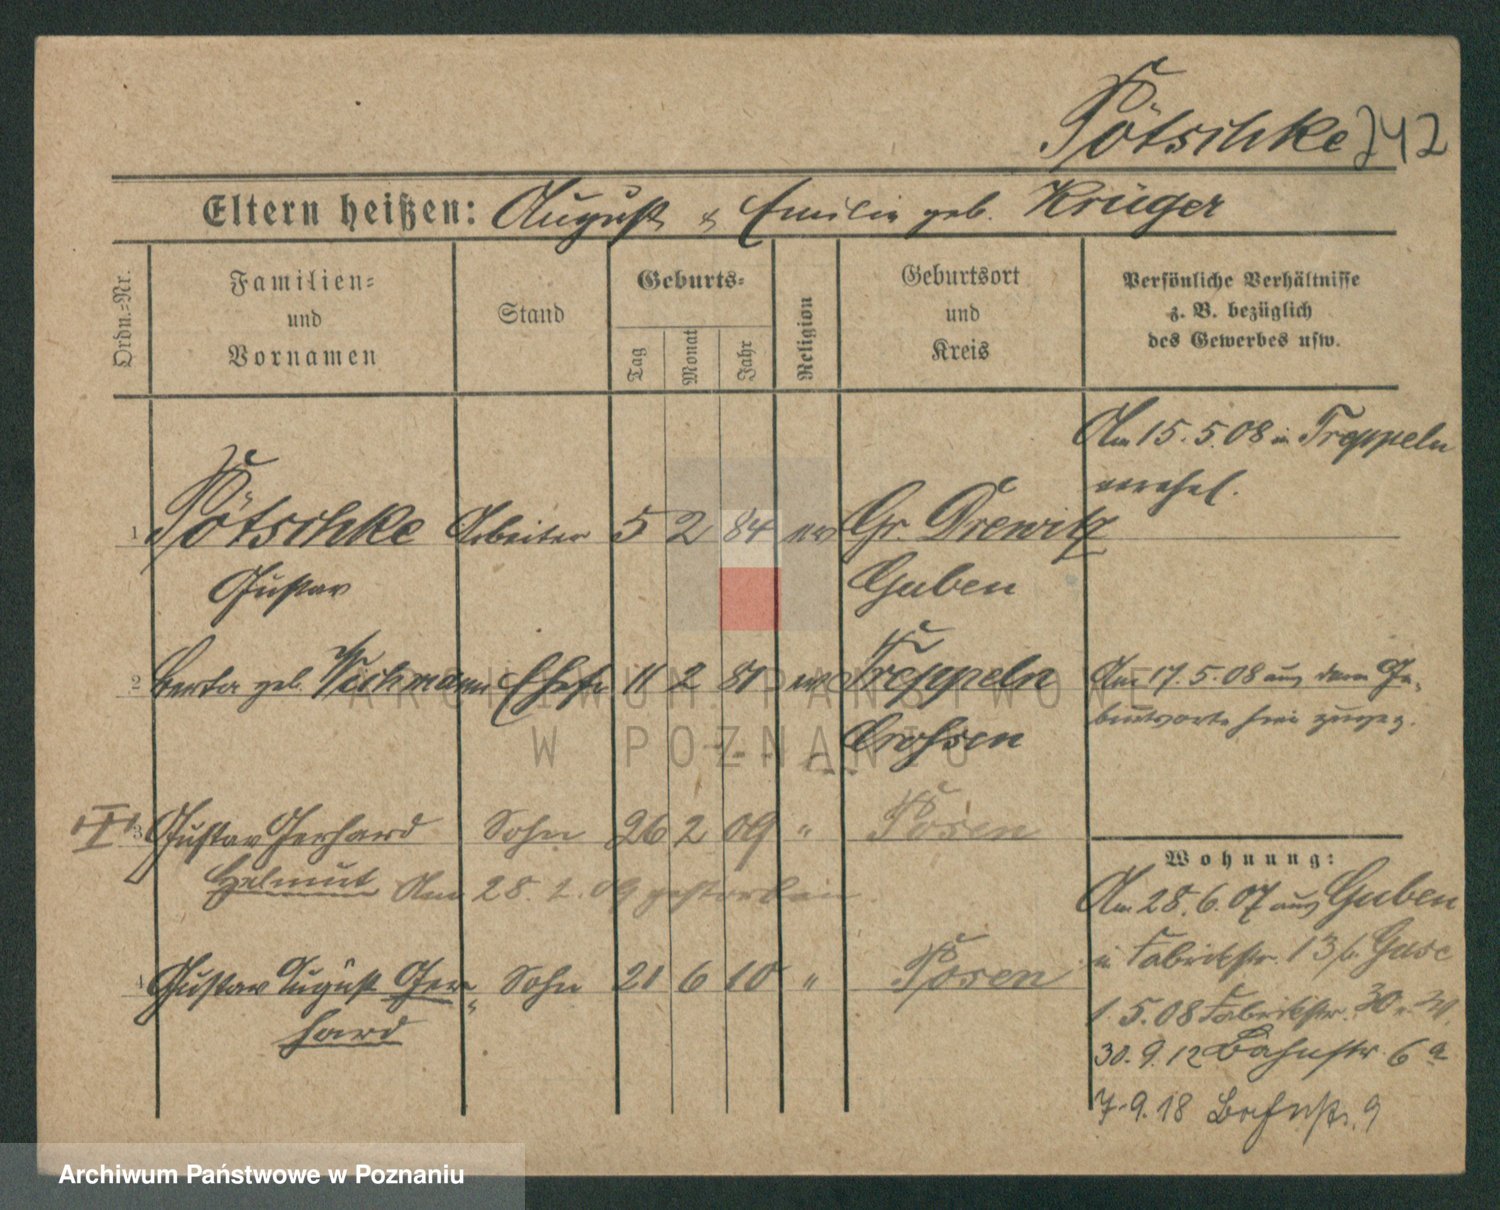 Pötschke 242
Eltern heißen: August & Emilie geb. Krüger
Ordn.=Nr.
Familien=
und
Vornamen
Stand
Geburts=
Tag
Monat
Jahr
Religion
Geburtsort
und
Kreis
Persönliche Verhältnisse
z. B. bezüglich
des Gewerbes usw.
Am 15.5.08 in Treppeln
verehel.
1 Pötschke Arbeiter 5 2 84 ev Gr. Drewitz
Gustav Guben
2 Berta geb. Wichmann Ehefr 11 2 81 ev Treppeln
Am 17.5.08 aus dem Ge=
burtsorte hier zugez.
Crossen
3 Gustav Gerhard Sohn 26 2 09 " Posen
Helmut Am 28. 2. 09 gestorben
Wohnung:
Am 28.6.07 aus Guben
in Fabrikstr. 13
4 Gustav August Ger= Sohn 21 6 10 " Posen
hard
1.5.08 Fabrikstr. 30
30.9.12 Bahnstr. 6a
7.9.18 Bahnstr. 9
ARCHIWUM PAŃSTWOWE
W POZNANIU
Archiwum Państwowe w Poznaniu